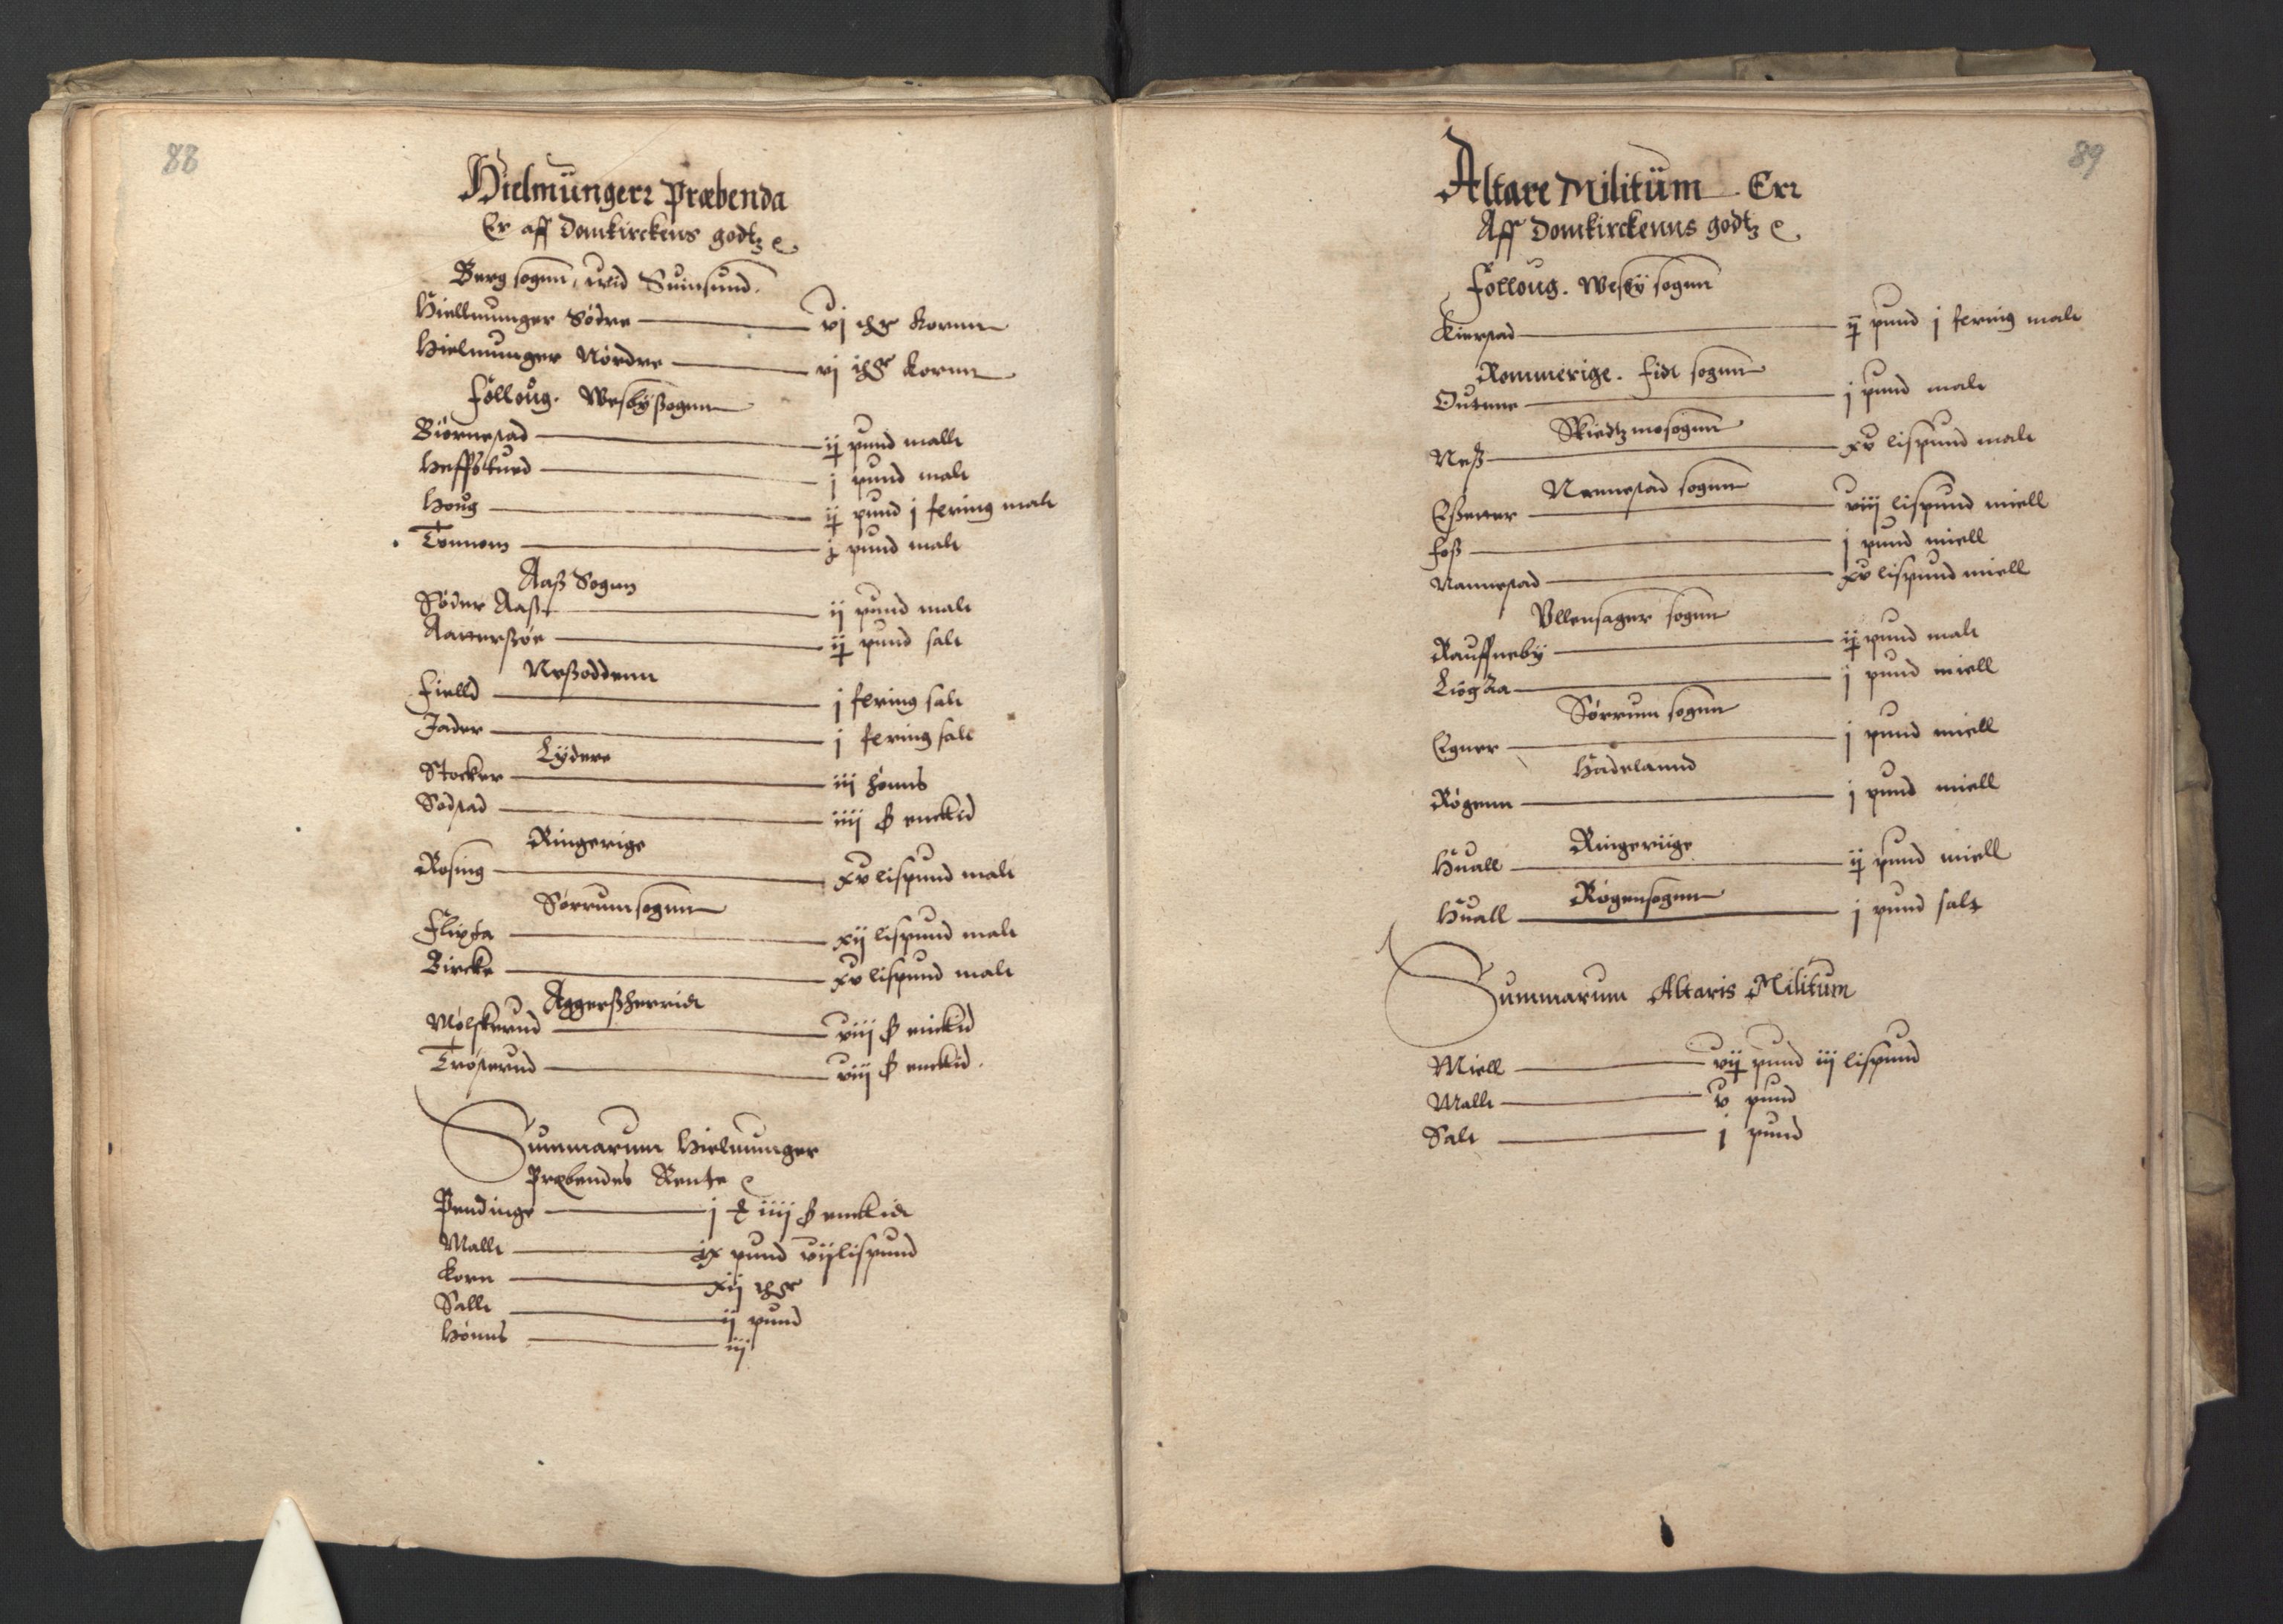 88
Hielmungerr Præbenda
Er aff Domkirckens godtz
Berg sognn, wid Suinsund.
Hiellmunger Södre — vj Kornn
Hielmunger Nördre — vj Kornn
Folloug. Wesbÿ sognn
Biörnestad — ij pund mallt
Heffsrud — j pund malt
Houg — ij pund j fering malt
Tönnom — j pund malt
Aaß Sognn
Söder Aaß — ij pund malt
Aanerßöe — ij pund salt
Neßoddenn
Fielld — j fering salt
Jader — j fering salt
Lÿdere
Stocker — iij höns
Sodstad — iiij ß enckid
Ringerige
Rosing — xv lispund malt
Sörrum sognn
Flixta — xij lispund malt
Bircke — xv lispund malt
Aggerßherridt
Mölskerud — viij ß enckid
Trösterud — viij ß enckid.
Summarum Hielmunger
Præbendes Rente
Pendinge — j iiij ß enckidt
Mallt — ix pund vij lispund
Korn — xij
Sallt — ij pund
Höns — iij
89
Altare Militum Err
Aff Domkirckenns godtz
Folloug. Wesbÿ sognn
Kierstad — ij pund j fering malt
Rommerige. Fidt sognn
Outnne — j pund malt
Skiedtzmo sognn
Neß — xv lispund malt
Nannestad sognn
Eßenner — viij lispund miell
Foß — j pund miell
Nannestad — xv lispund miell
Vllensager sognn
Rauffnebÿ — ij pund malt
Liögaa — j pund miell
Sörrum sognn
Egner — j pund miell
Hadelannd
Rögenn — j pund miell
Ringeriige
Huall — ij pund miell
Rögen sognn
Huall — j pund salt
Summarum Altaris Militum
Miell — vij pund iij lispund
Mallt — v pund
Salt — j pund